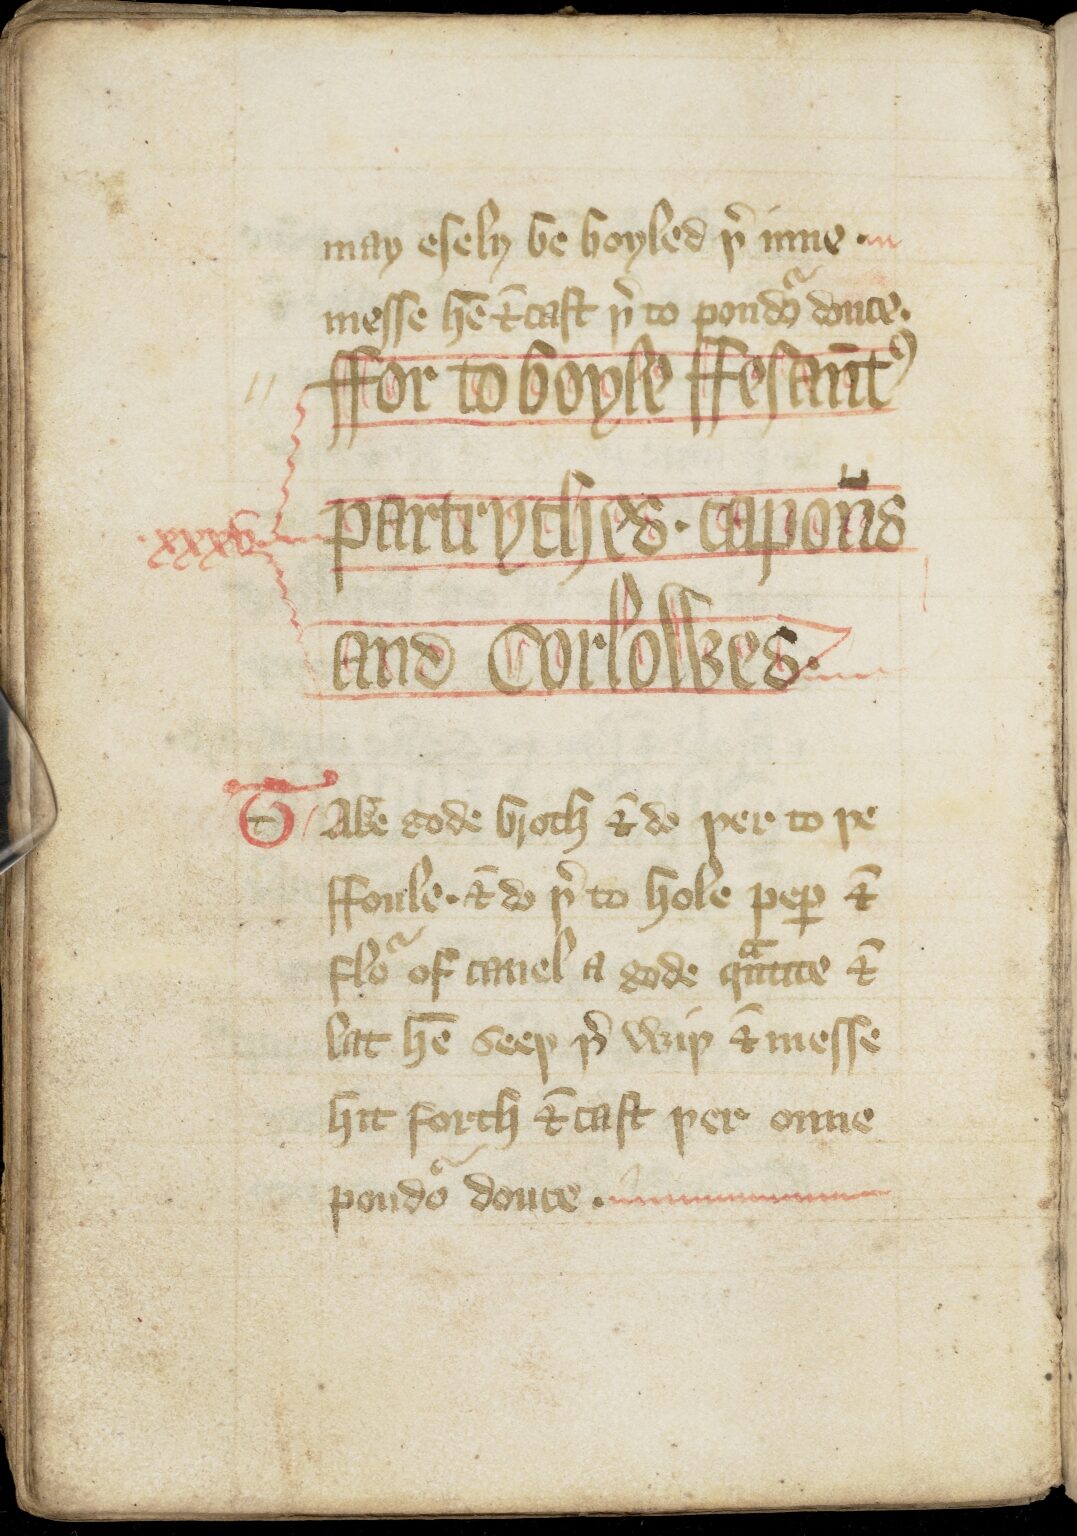 may esely be boyled þ̉ inne ·
messe hē & cast þ̉ to poudo᷑ douce.
ffor to boyle ffesant᷒
xxxv partryches · capoūs
and Corlowes ·
TAke gode broth & do þer to þe
ffoule · & do þ̉ to hole peꝑ &
flo᷑ of canel a gode qᵃntite &
lat hē seeþ þ̉ wiþ & messe
hit forth & cast þer onne
poudo᷑ douce ·